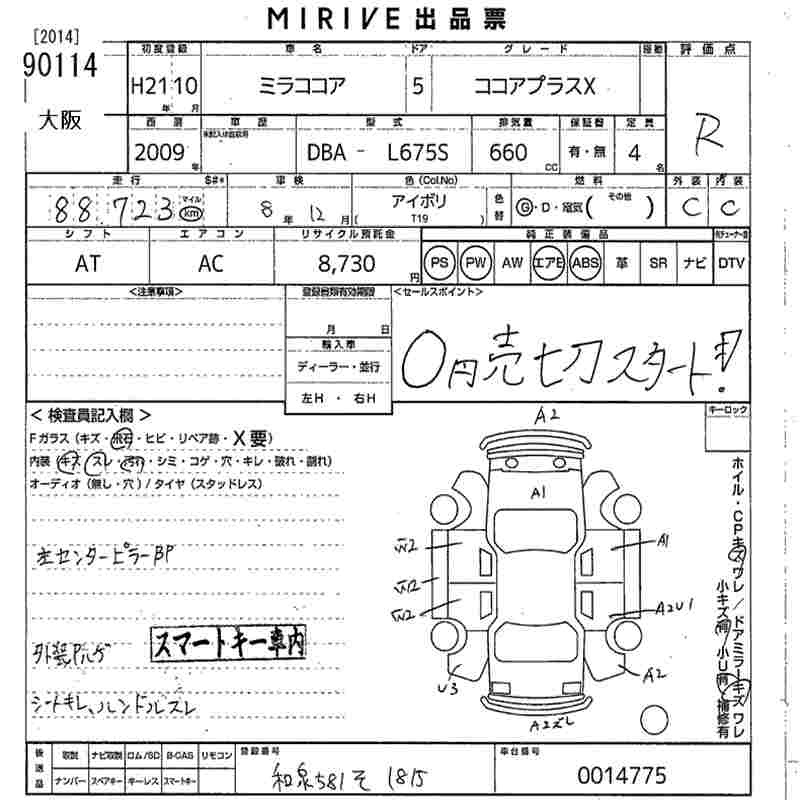 MIRIVE 出品票
[2014]
90114
大阪
初度登録 車名 ドア グレード 評価点
H21 10 ミラココア 5 ココアプラスX R
年 月
車歴 型式 排気量 定員
2009 年 DBA - L675S 660 CC 有・無 4 名
走行 車検 色(Col.No) 燃料 外装 内装
88,723 マイル km 8 年 12 月 アイボリ 色替 G・D・電気( その他 ) C C
( T19 )
シフト エアコン リサイクル預託金 純正装備品
AT AC 8,730 円 PS PW AW エアB ABS 革 SR ナビ DTV
<注意事項> <セールスポイント>
月 日
輸入車
ディーラー・並行
左H ・ 右H
0円売切スタート!!
< 検査員記入欄 > キーロック
Fガラス (キズ・飛石・ヒビ・リペア跡・X要)
内装 (キズ・スレ・汚れ・シミ・コゲ・穴・キレ・破れ・割れ)
オーディオ (無し・穴) / タイヤ (スタッドレス)
A2
A1
A1
A2U1
A2
U3
左センターピラーBP
スマートキー車内
シートキレ、ハンドルスレ
A2ズレ
ホイル・CPキズワレ/ドアミラーキズワレ
小キズ有 小U有 補修有
後送品 取説 ナビ取説 ロム/SD B-CAS リモコン 登録番号 車台番号
ナンバー スペアキー キーレス スマートキー 和泉581そ1815 0014775